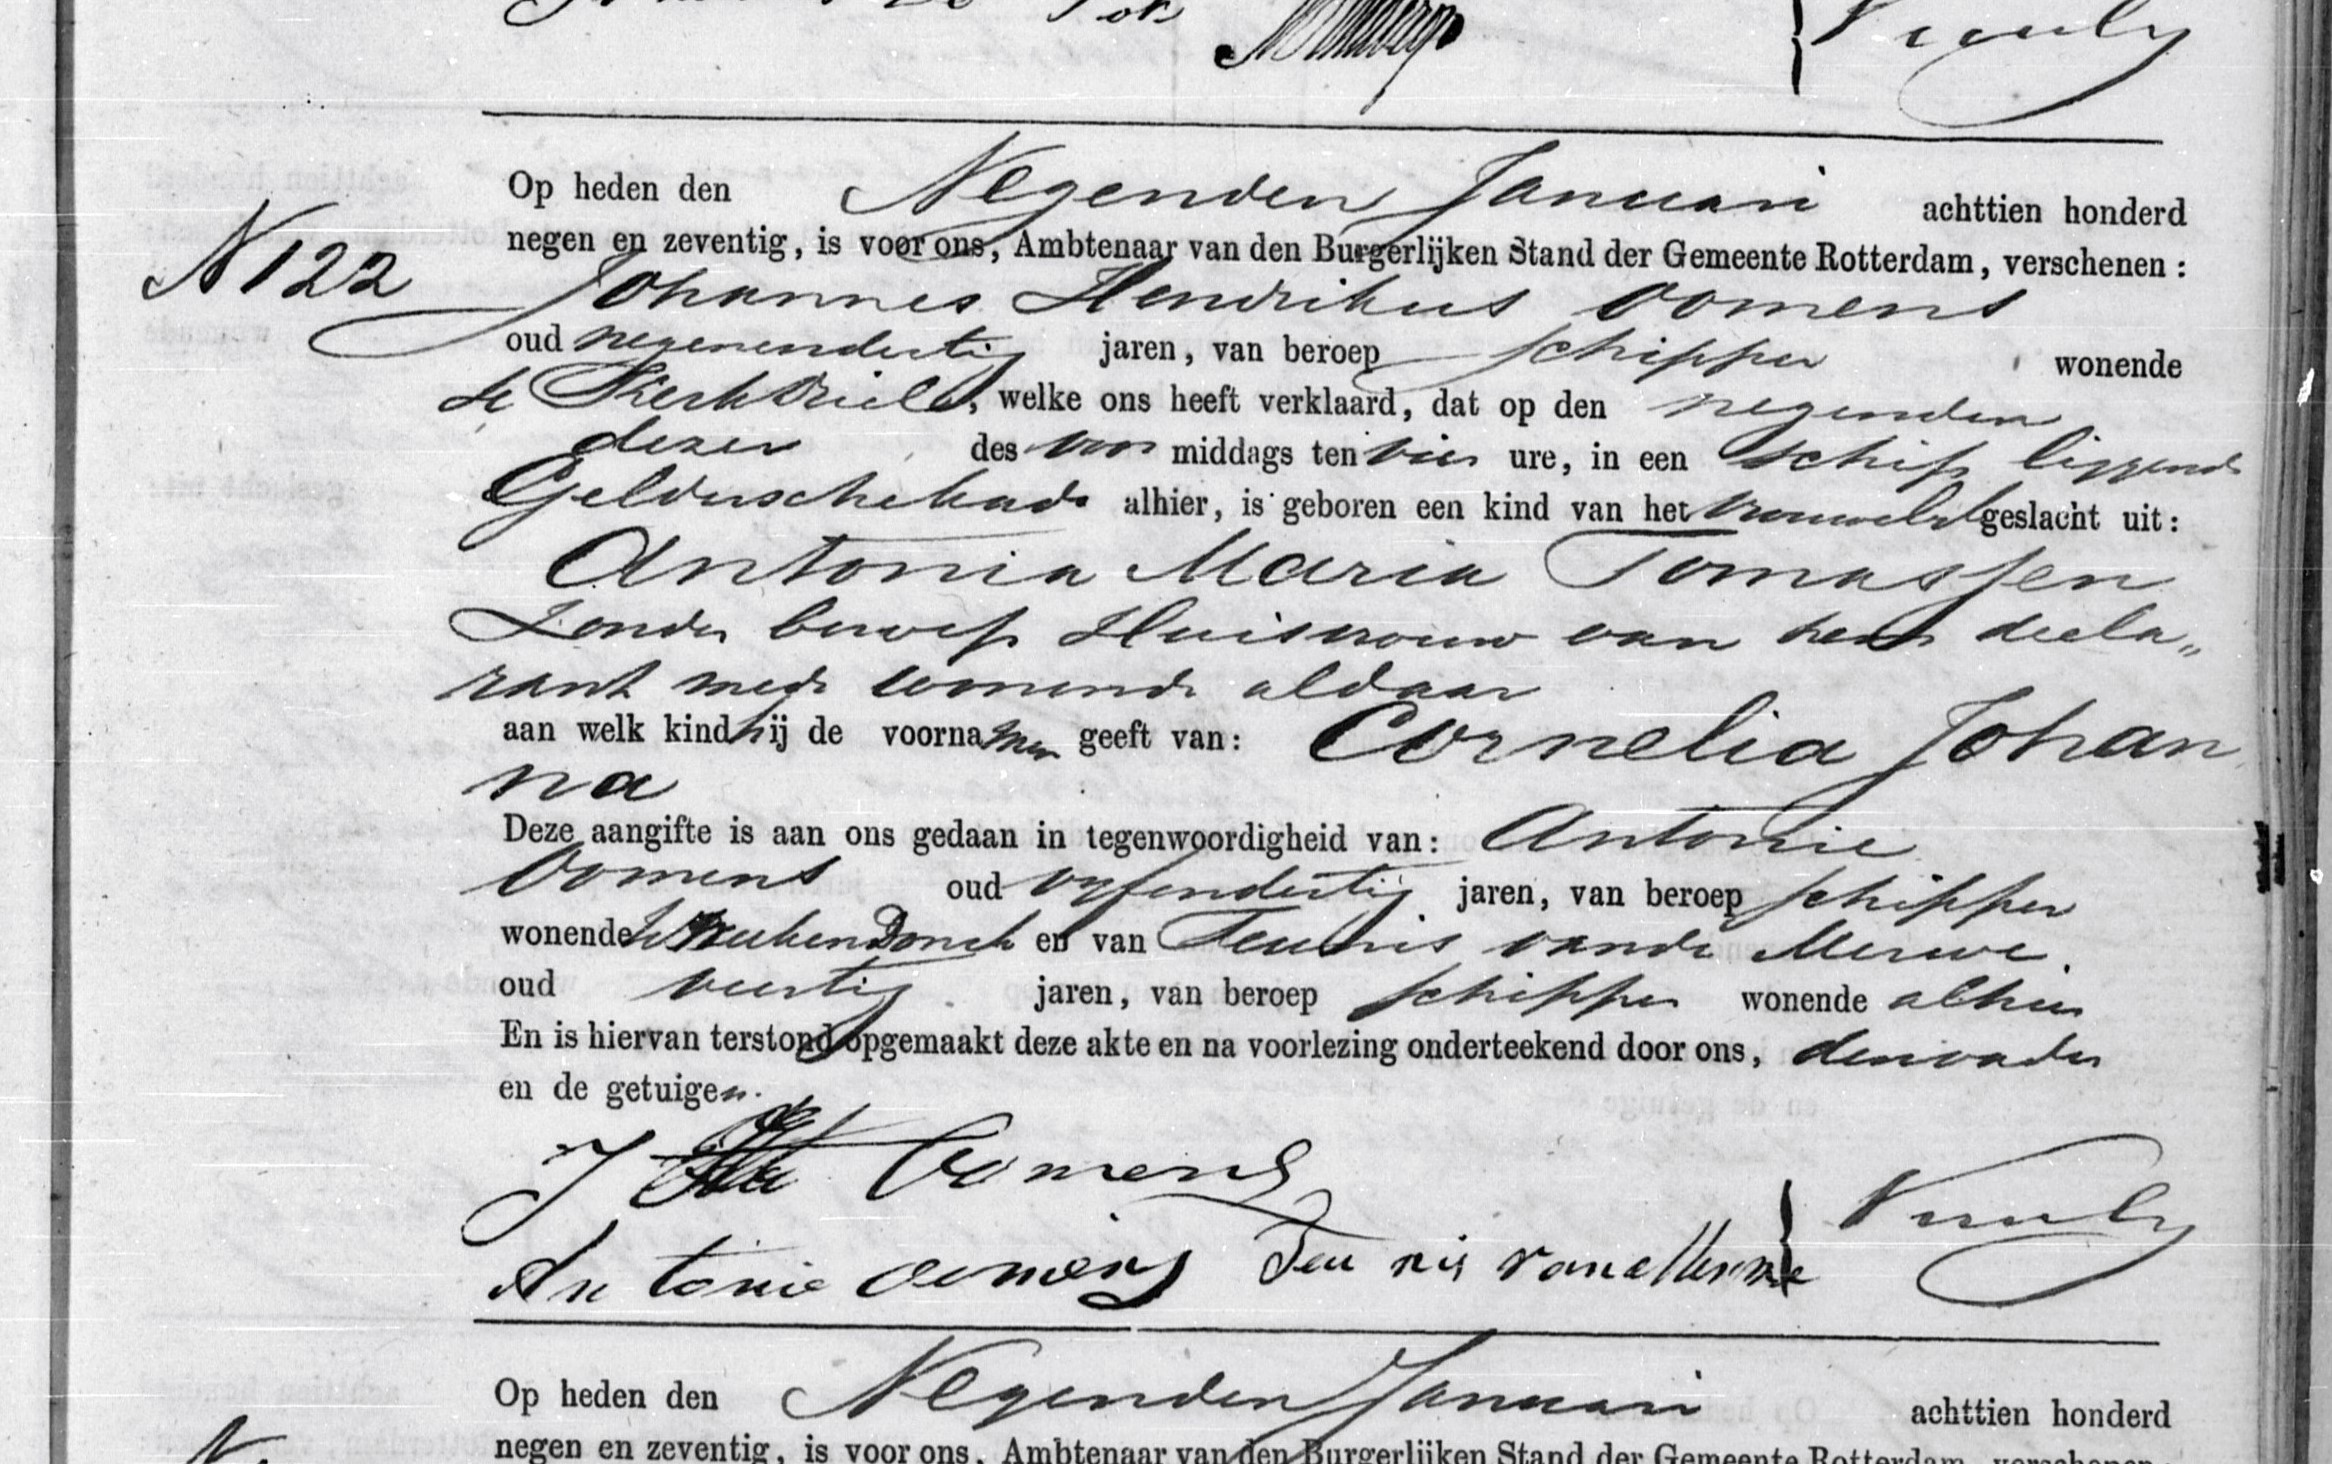 Op heden den Negenden Januari achttien honderd
negen en zeventig, is voor ons, Ambtenaar van den Burgerlijken Stand der Gemeente Rotterdam, verschenen:
N 122
Johannes Hendrikus Oomens
oud negenendertig jaren, van beroep schipper wonende
te Kerkdriel, welke ons heeft verklaard, dat op den negenden
dezer des voor middags ten vier ure, in een schip liggende
Gelderschekade alhier, is geboren een kind van het vrouwelijk geslacht uit:
Antonia Maria Tomassen
Zonder beroep Huisvrouw van hem decla„
rant mede wonende aldaar
aan welk kind hij de voornamen geeft van: Cornelia Johan
na
Deze aangifte is aan ons gedaan in tegenwoordigheid van: Antonie
Oomens oud vyfendertig jaren, van beroep schipper
wonende te en van Teunis vande Merwe.
oud veertig jaren, van beroep schipper wonende alhier
En is hiervan terstond opgemaakt deze akte en na voorlezing onderteekend door ons, den vader
en de getuigen.
J Oomens
Antonie oomens Teunis vande Merwe
Op heden den Negenden Januari achttien honderd
negen en zeventig, is voor ons, Ambtenaar van den Burgerlijken Stand der Gemeente Rotterdam, verschenen: